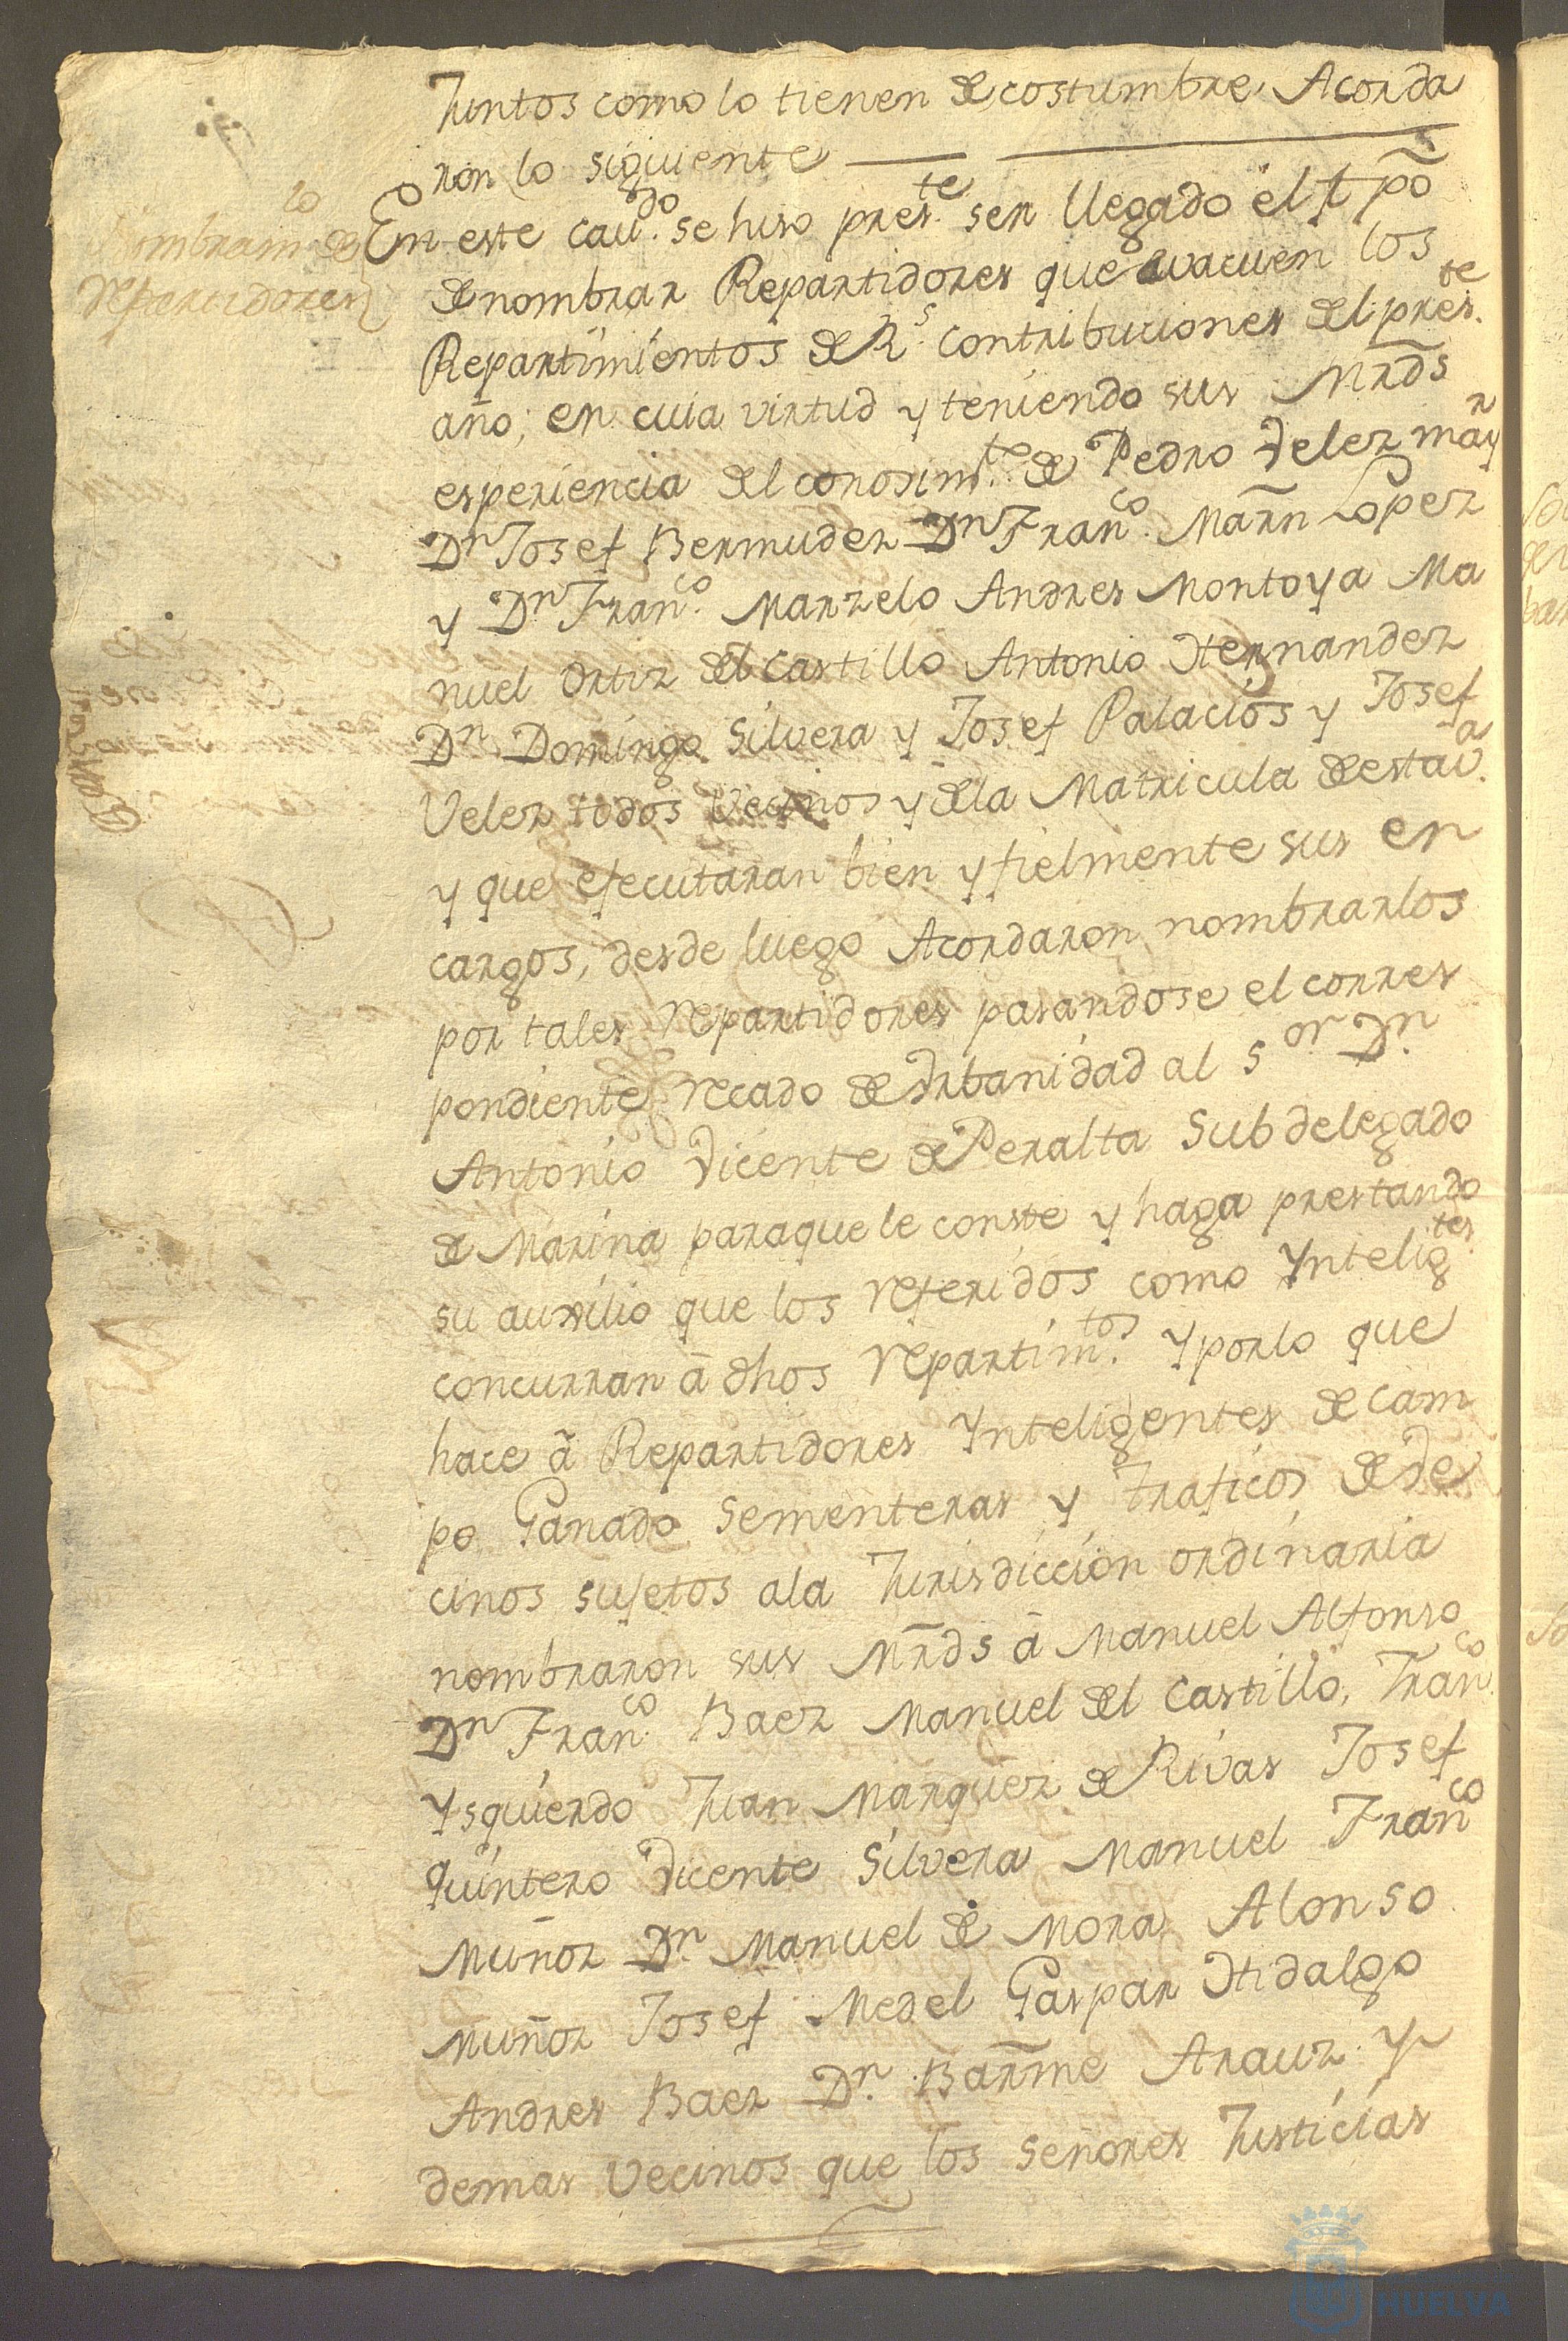 Juntos como lo tienen de costumbre Acorda
ron lo siguiente
Nombram.to de
repartidores
En este cav.do se hiso pres.te ser llegado el tpõ
de nombrar Repartidores que evacuen los
Repartimientos de R.s contribuciones del pres.te
año; en cuia virtud y teniendo sus Mrds
esperiencia del conosim.to de Pedro Velez mayr
Dn Josef Bermudez Dn Fran.co Marñ Lopez
y Dn Fran.co Marzelo Andres Montoya Ma
nuel Ortiz del Castillo Antonio Hernandez
Dn Domingo Silvera y Josef Palacios y Josef
Velez todos Vecinos y de la Matricula de esta v.a
y que efecutaran bien y fielmente sus en
cargos, desde luego Acordaron nombrarlos
por tales repartidores pasandose el corres
pondiente recado de Vrbanidad al Sor Dn
Antonio Vicente de Peralta Subdelegado
de Marina para que le conste y haga prestando
su auxilio que los referidos como Yntelig.tes
concurran á dhos repartim.tos y por lo que
hace á Repartidores Ynteligentes de cam
po Ganado Sementeras y traficos de Ve
cinos sujetos a la Jurisdiccion ordinaria
nombraron sus Mrds á Manuel Alfonso
Dn Fran.co Baez Manuel del Castillo, Fran.co
Ysquierdo Juan Marquez de Rivas Josef
Quintero Vicente Silvera Manuel Fran.co
Muñoz Dn Manuel de Mora Alonso
Muñoz Josef Medel Gaspar Hidalgo
Andres Baez Dn Barme Arauz y
demas Vecinos que los Señores Justicias
HUELVA